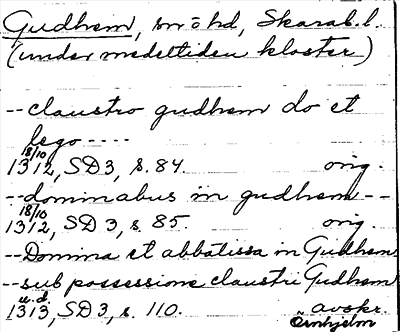 Gudhem, sn o hd, Skarab. l.
(under medeltiden kloster)
-- claustro gudhem do et
lego ----
18/10
1312, SD 3, s. 84. orig.
-- dominabus in gudhem --
18/10
1312, SD 3, s. 85. orig.
-- Domina et abbatissa in Gudhem
-- sub possessione claustri Gudhem
u. d.
1313, SD 3, s. 110. avskr.
Örnhjelm